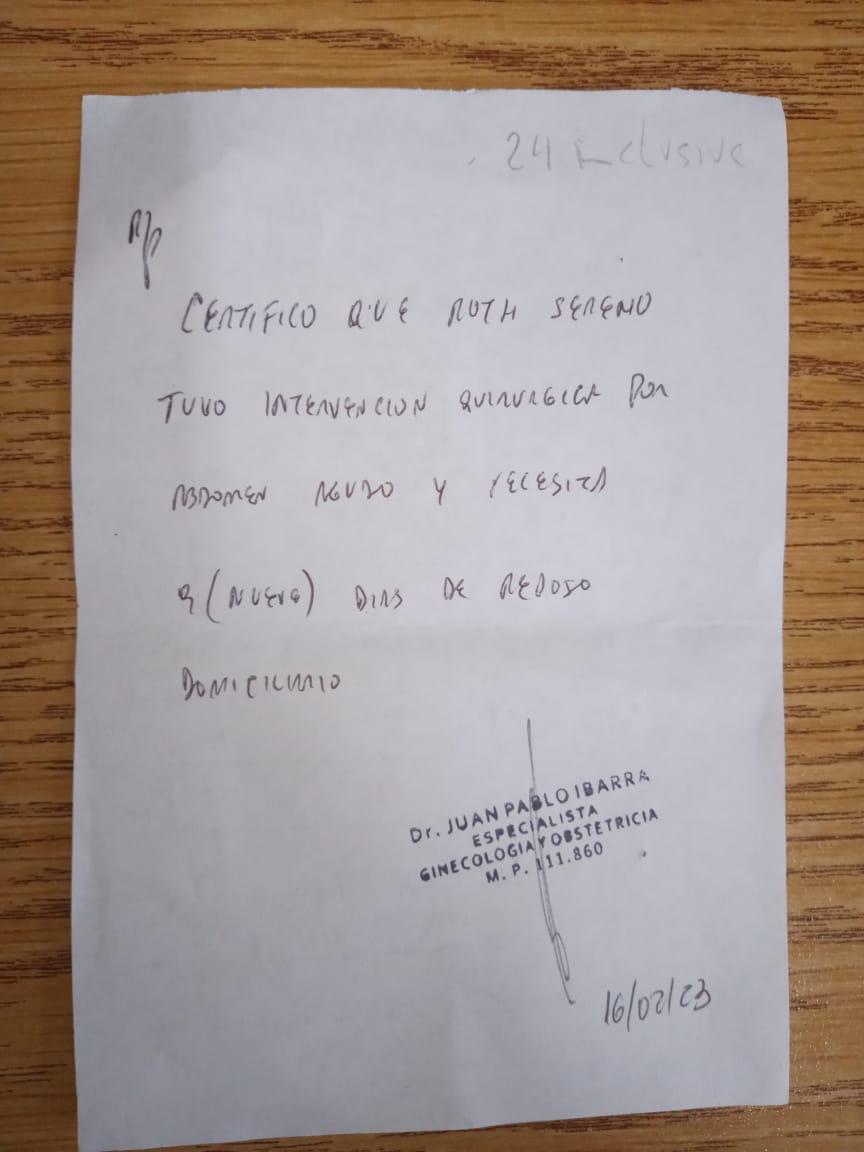 24 inclusive
R/p
CERTIFICO QUE RUTH SERENO
TUVO INTERVENCION QUIRURGICA POR
ABDOMEN AGUDO Y NECESITA
9 (NUEVE) DIAS DE REPOSO
DOMICILIARIO
Dr. JUAN PABLO IBARRA
ESPECIALISTA
GINECOLOGIA Y OBSTETRICIA
M. P. 111.860
16/02/23